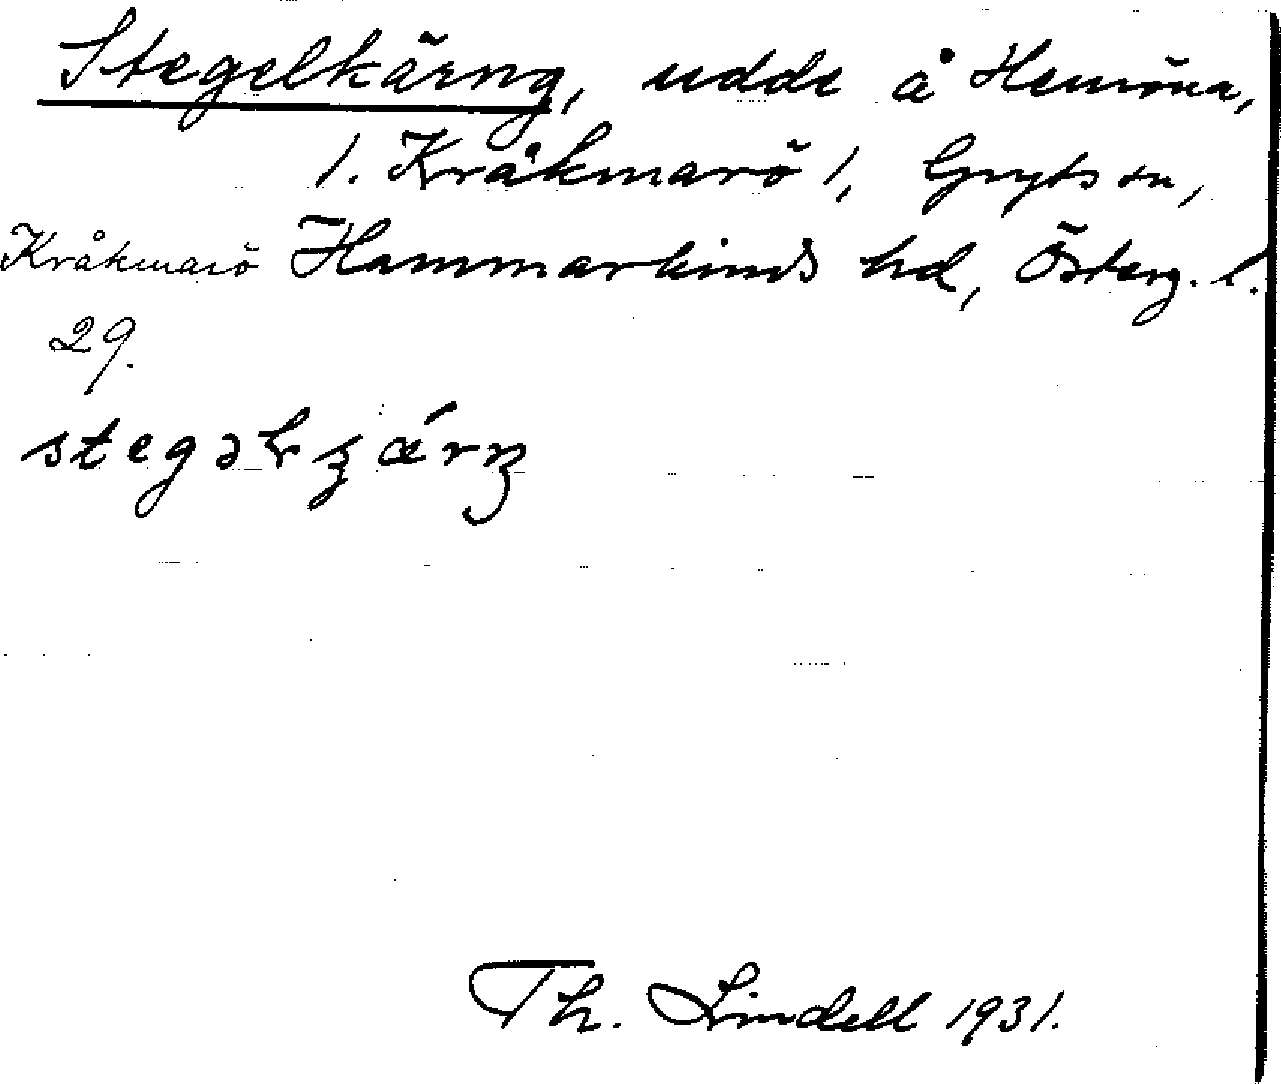 Stegelkärng, udde å Hemöna,
/. Kråkmarö /, Gryts sn,
Kråkmarö Hammarkinds hd, Österg. l.
29.
Th. Lindell 1931.